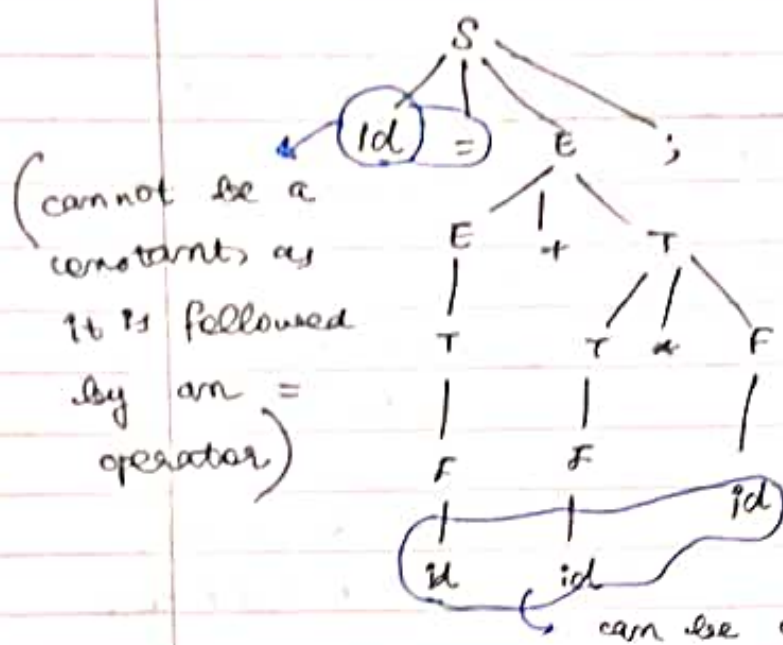 S
id = E ;
(cannot be a
constant, as
it is followed
by an =
operator)
E + T
T T * F
F F
id id id
can be